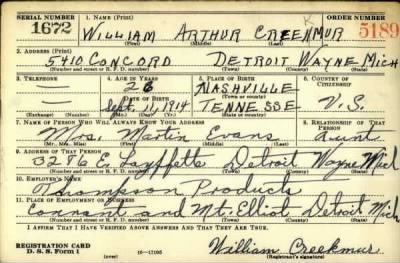 SERIAL NUMBER 1. NAME (Print) ORDER NUMBER
1672 WILLIAM ARTHUR CREEKMUR K 5189
(First) (Middle) (Last)
2. ADDRESS (Print)
5410 CONCORD DETROIT WAYNE MICH
(Number and street or R. F. D. number) (Town) (County) (State)
3. TELEPHONE 4. AGE IN YEARS 5. PLACE OF BIRTH 6. COUNTRY OF CITIZENSHIP
26 NASHVILLE
DATE OF BIRTH (Town or county)
Sept. 11, 1914 TENNESSE U.S.
(Exchange) (Number) (Mo.) (Day) (Yr.) (State or country)
7. NAME OF PERSON WHO WILL ALWAYS KNOW YOUR ADDRESS 8. RELATIONSHIP OF THAT PERSON
Mrs. Martin Evans Aunt
(Mr., Mrs., Miss) (First) (Middle) (Last)
9. ADDRESS OF THAT PERSON
3286 E. Layffetts Detroit Wayne Mich
(Number and street or R. F. D. number) (Town) (County) (State)
10. EMPLOYER'S NAME
Thompson Products
11. PLACE OF EMPLOYMENT OR BUSINESS
Connant and Mt. Elliot Detroit Mich
(Number and street or R. F. D. number) (Town) (County) (State)
I AFFIRM THAT I HAVE VERIFIED ABOVE ANSWERS AND THAT THEY ARE TRUE.
REGISTRATION CARD
D. S. S. Form 1 (over) 16-17105 William Creekmur
(Registrant's signature)